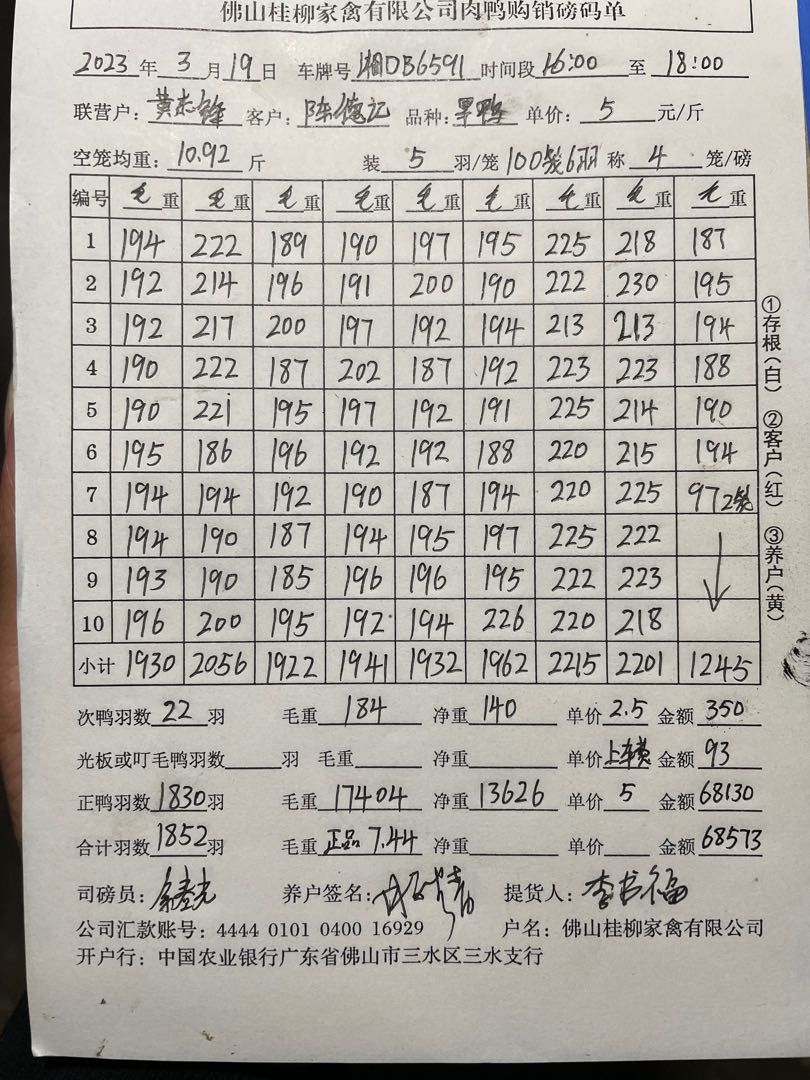 佛山桂柳家禽有限公司肉鸭购销磅码单
2023 年 3 月 19 日 车牌号 湘DB6591 时间段 16:00 至 18:00
联营户: 黄志锋 客户: 陈德记 品种: 单价: 5 元/斤
空笼均重: 10.92 斤 装 5 羽/笼 100笼6羽 称 4 笼/磅
编号 毛重 毛重 毛重 毛重 毛重 毛重 毛重 毛重 毛重
1 194 222 189 190 197 195 225 218 187
2 192 214 196 191 200 190 222 230 195
3 192 217 200 197 192 194 213 213 194
4 190 222 187 202 187 192 223 223 188
5 190 221 195 197 192 191 225 214 190
6 195 186 196 192 192 188 220 215 194
7 194 194 192 190 187 194 220 225 97 2笼
8 194 190 187 194 195 197 225 222
9 193 190 185 196 196 195 222 223
10 196 200 195 192 194 226 220 218
小计 1930 2056 1922 1941 1932 1962 2215 2201 1245
①存根(白) ②客户(红) ③养户(黄)
次鸭羽数 22 羽 毛重 184 净重 140 单价 2.5 金额 350
光板或叮毛鸭羽数 羽 毛重 净重 单价 上车费 金额 93
正鸭羽数 1830 羽 毛重 17404 净重 13626 单价 5 金额 68130
合计羽数 1852 羽 毛重 正品 7.44 净重 单价 金额 68573
司磅员: 养户签名: 提货人: 李书福
公司汇款账号: 4444 0101 0400 16929 户名: 佛山桂柳家禽有限公司
开户行: 中国农业银行广东省佛山市三水区三水支行